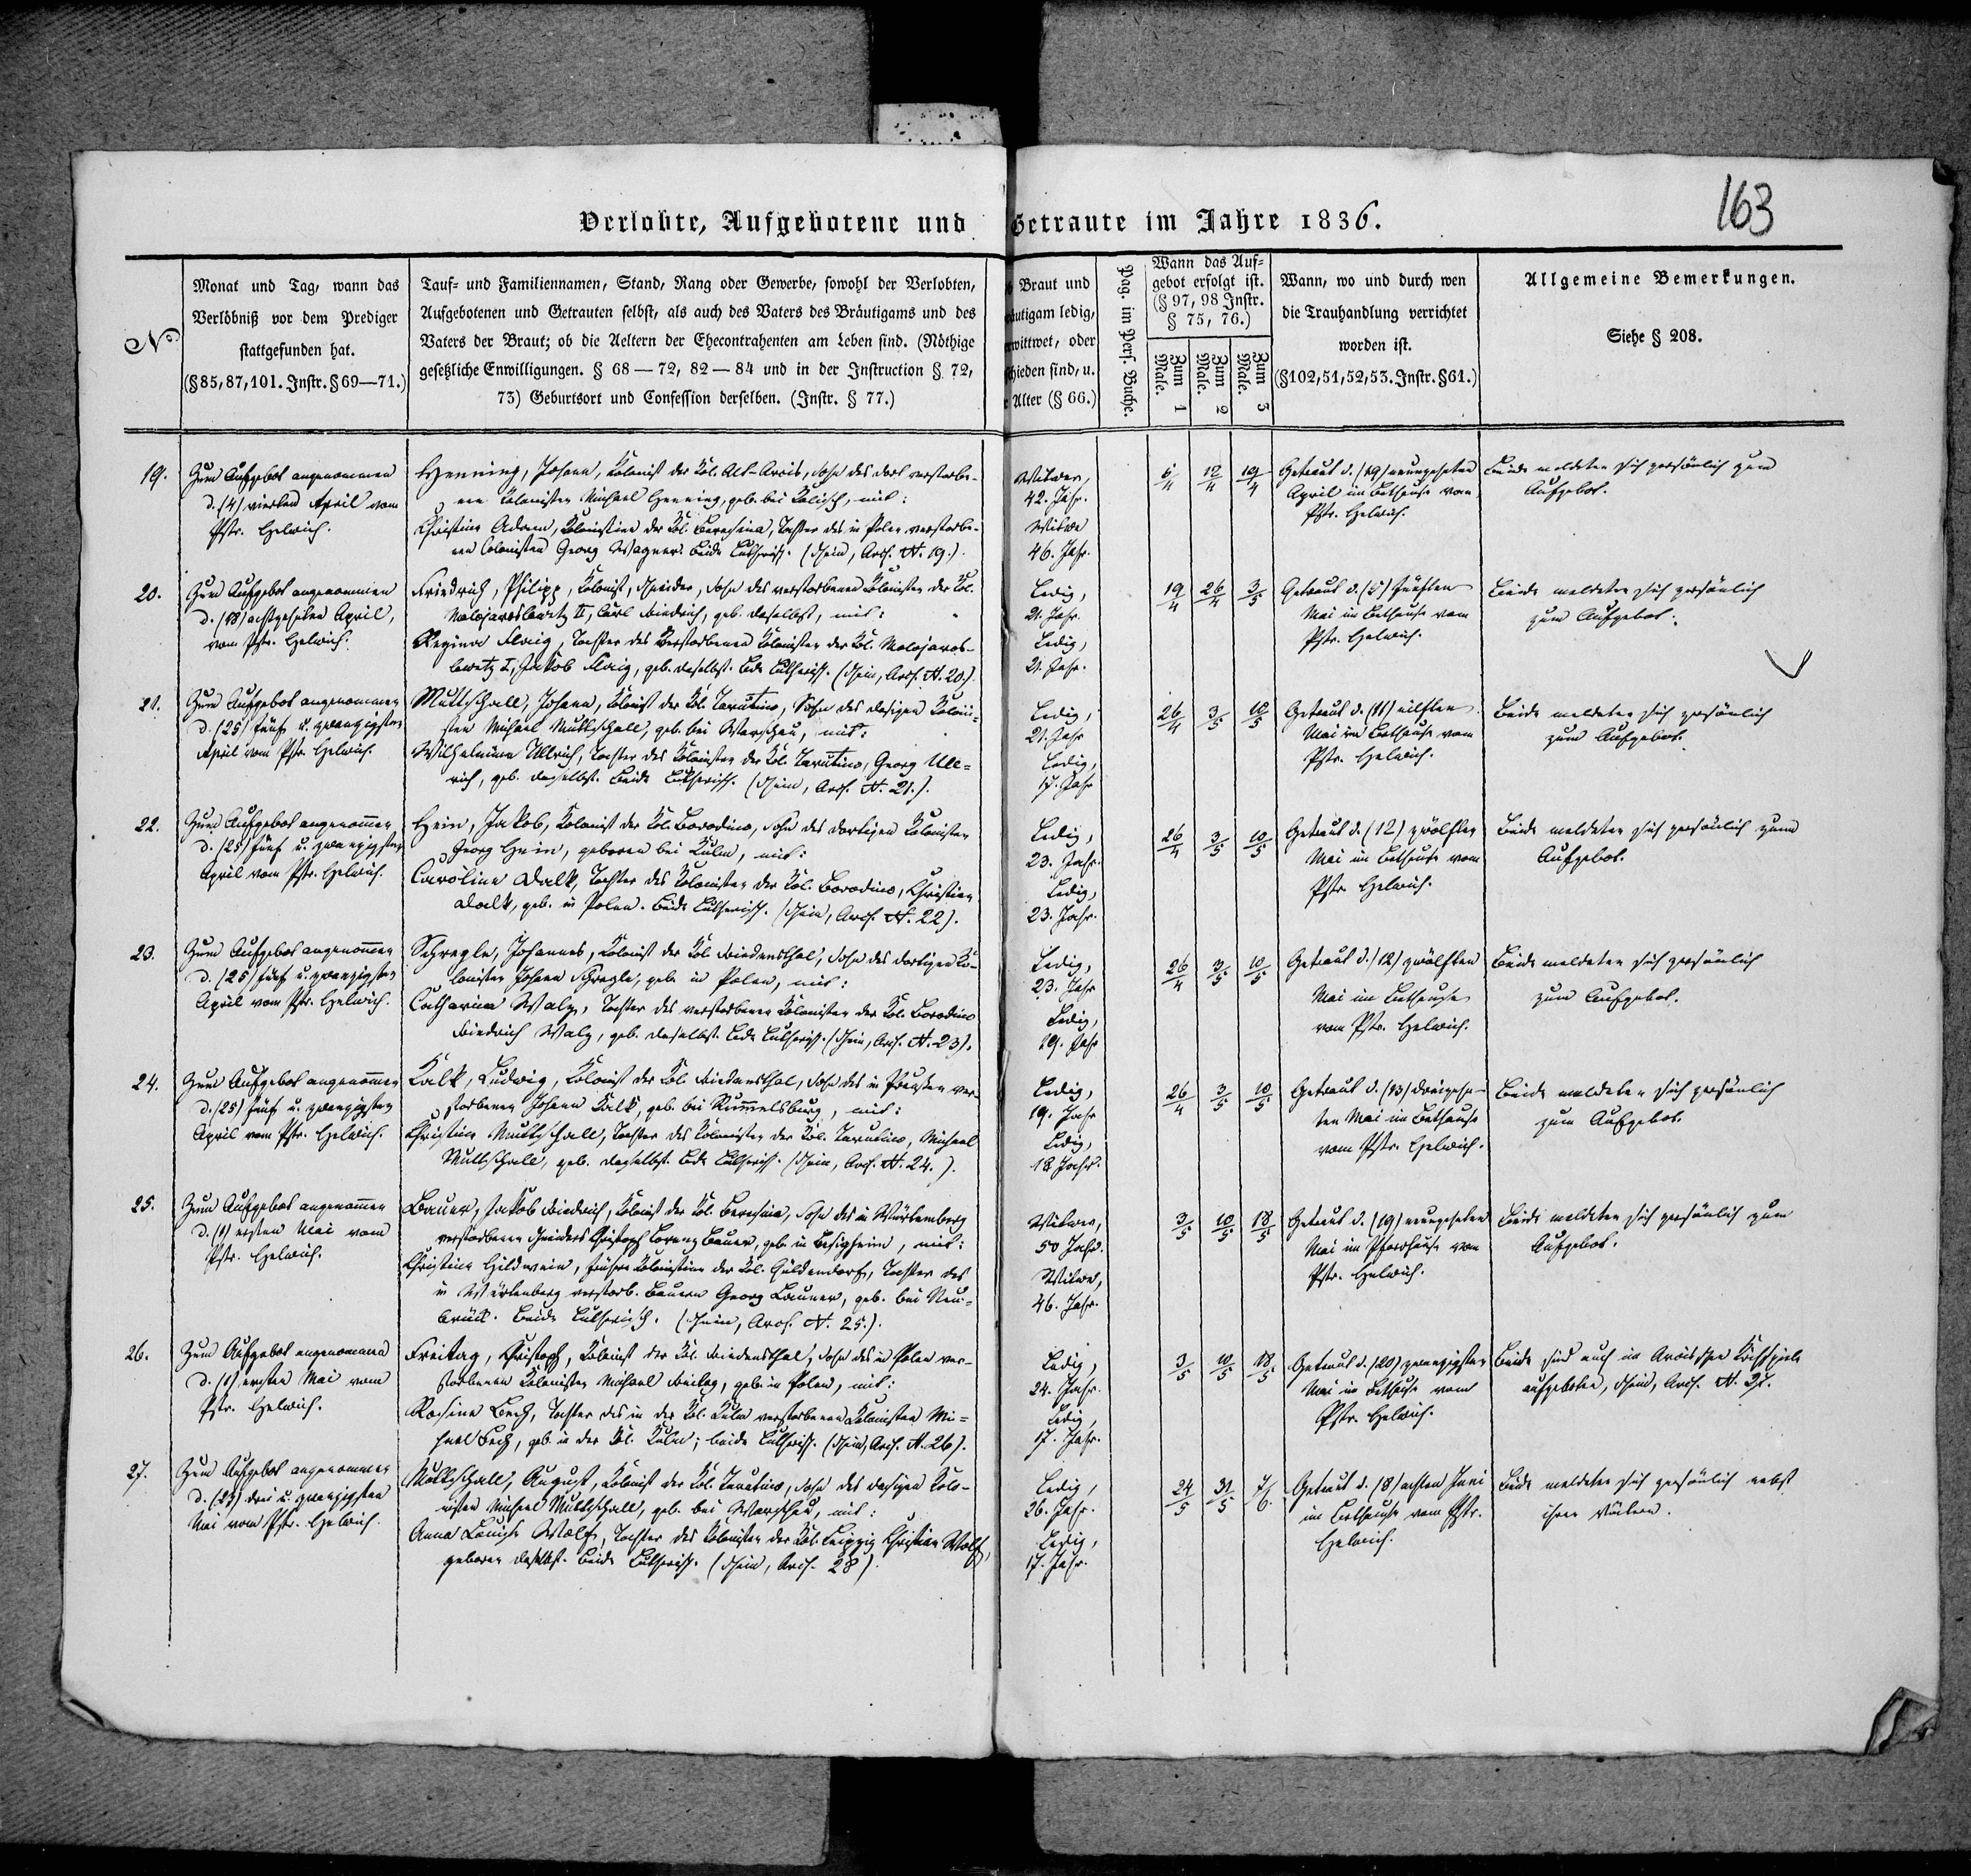 163
Verlobte, Aufgebotene und Getraute im Jahre 1836.
No
Monat und Tag, wann das
Verlöbniß vor dem Prediger
stattgefunden hat.
(§85,87,101. Instr.§69—71.)
Tauf= und Familiennamen, Stand, Rang oder Gewerbe, sowohl der Verlobten,
Aufgebotenen und Getrauten selbst, als auch des Vaters des Bräutigams und des
Vaters der Braut; ob die Aeltern der Ehecontrahenten am Leben sind. (Nöthige
gesetzliche Enwilligungen. § 68 — 72, 82 — 84 und in der Instruction § 72,
73) Geburtsort und Confession derselben. (Instr. § 77.)
Braut und
äutigam ledig,
wittwet, oder
hieden sind, u.
Alter (§ 66.)
Pag. im Pers. Buche.
Wann das Auf=
gebot erfolgt ist.
(§ 97, 98 Instr.
§ 75, 76.)
Zum 1 Male.
Zum 2 Male.
Zum 3 Male.
Wann, wo und durch wen
die Trauhandlung verrichtet
worden ist.
(§102,51,52,53.Instr.§61.)
Allgemeine Bemerkungen.
Siehe § 208.
19.
Zum Aufgebot angenommen
d. (4) vierten April vom
Pstr. Helwich.
Henning, Johann, Kolonist der Kol. Alt-Arcis, Sohn des dort verstorbe-
nen Kolonisten Michael Henning, geb. bei Kalisch, mit:
Christine Adam, Kolonistin der Kol. Beresina, Tochter des in Polen verstorbe-
nen Colonisten Georg Wagner. Beide Lutherisch. (Schein, Arch. N. 19.)
Witwer,
42. Jahr.
Witwe
46. Jahr.
12/4 19/4
Getraut d. (19) neunzehnten
April im Bethause vom
Pstr. Helwich.
Beide meldeten sich persönlich zum
Aufgebot.
20.
Zum Aufgebot angenommen
d. (18) achtzehnten April,
vom Pstr. Helwich.
Friedrich, Philipp, Kolonist, Schneider, Sohn des verstorbenen Kolonisten der Kol.
Malojaroslawetz II, Carl Friedrich, geb. daselbst, mit:
Regina Flaig, Tochter des verstorbenen Kolonisten der Kol. Malojaros-
lawetz I, Jakob Flaig, geb. daselbst. Beide Lutherisch. (Schein, Arch. N. 20.)
Ledig,
21. Jahr.
Ledig,
21. Jahr.
19/4 26/4 3/5
Getraut d. (5) fünften
Mai im Bethause vom
Pstr. Helwich.
Beide meldeten sich persönlich
zum Aufgebot.
21.
Zum Aufgebot angenommen
d. (25) fünf u. zwanzigsten
April vom Pstr. Helwich.
Muttschall, Johann, Kolonist der Kol. Tarutino, Sohn des dasigen Koloni-
sten Michael Muttschall, geb. bei Warschau, mit:
Wilhelmine Ullrich, Tochter des Kolonisten der Kol. Tarutino, Georg Ull-
rich, geb. daselbst. Beide Lutherisch. (Schein, Arch. N. 21.)
Ledig,
21. Jahr
Ledig,
17. Jahr
26/4 3/5 10/5
Getraut d. (11) eilften
Mai im Bethause vom
Pstr. Helwich.
Beide meldeten sich persönlich
zum Aufgebot.
22.
Zum Aufgebot angenommen
d. (25) fünf u. zwanzigsten
April vom Pstr. Helwich.
Hein, Jakob, Kolonist der Kol. Borodino, Sohn des dortigen Kolonisten
Georg Hein, geboren bei Kulm, mit:
Caroline Dalk, Tochter des Kolonisten der Kol. Borodino, Christian
Dalk, geb. in Polen. Beide Lutherisch. (Schein, Arch. N. 22).
Ledig,
23. Jahr.
Ledig,
23. Jahr.
26/4 3/5 10/5
Getraut d. (12) zwölften
Mai im Bethause vom
Pstr. Helwich.
Beide meldeten sich persönlich zum
Aufgebot.
23.
Zum Aufgebot angenommen
d. (25) fünf u. zwanzigsten
April vom Pstr. Helwich.
Schregle, Johannes, Kolonist der Kol. Friedensthal, Sohn des dortigen Ko-
lonisten Johann Schregle, geb. in Polen, mit:
Catharina Walz, Tochter des verstorbenen Kolonisten der Kol. Borodino
Friedrich Walz, geb. daselbst. Beide Lutherisch. (Schein, Arch. N. 23).
Ledig,
23. Jahr
Ledig,
19. Jahr
26/4 3/5 10/5
Getraut d. (12) zwölften
Mai im Bethause
vom Pstr. Helwich.
Beide meldeten sich persönlich
zum Aufgebot.
24.
Zum Aufgebot angenommen
d. (25) fünf u. zwanzigsten
April vom Pstr. Helwich.
Kalk, Ludwig, Kolonist der Kol. Friedensthal, Sohn des in Preußen ver-
storbenen Johann Kalk, geb. bei Rummelsburg, mit:
Christine Muttschall, Tochter des Kolonisten der Kol. Tarutino, Michael
Muttschall, geb. daselbst. Beide Lutherisch. (Schein, Arch. N. 24.)
Ledig,
19. Jahr
Ledig,
18 Jahr.
26/4 3/5 10/5
Getraut d. (13) dreizehn-
ten Mai im Bethause
vom Pstr. Helwich.
Beide meldeten sich persönlich
zum Aufgebot.
25.
Zum Aufgebot angenommen
d. (1) ersten Mai vom
Pstr. Helwich.
Bauer, Jakob Friedrich, Kolonist der Kol. Beresina, Sohn des in Würtemberg
verstorbenen Schneiders Christoph Lorenz Bauer, geb. in Besigheim, mit:
Christine Hildwein, frühere Kolonistin der Kol. Güldendorf, Tochter des
in Würtemberg verstorb. Bauern Georg Launer, geb. bei Neu-
. Beide Lutherisch. (Schein, Arch. N. 25.)
Witwer,
50 Jahr.
Witwe,
46. Jahr.
3/5 10/5 18/5
Getraut d. (19) neunzehnten
Mai im Pfarrhause vom
Pstr. Helwich.
Beide meldeten sich persönlich zum
Aufgebot.
26.
Zum Aufgebot angenommen
d. (1) ersten Mai vom
Pstr. Helwich.
Freitag, Christoph, Kolonist der Kol. Friedensthal, Sohn des in Polen ver-
storbenen Kolonisten Michael Freitag, geb. in Polen, mit:
Rosine Bech, Tochter des in der Kol. Kulm verstorbenen Kolonisten Mi-
chael Bech, geb. in der Kol. Kulm; beide Lutherisch. (Schein, Arch. N. 26).
Ledig,
24. Jahr.
Ledig,
17. Jahr.
3/5 10/5 18/5
Getraut d. (20) zwanzigsten
Mai im Bethause vom
Pstr. Helwich.
Beide sind auch im Arcisschen Kirchspiele
aufgeboten, Schein, Arch. N. 27.
27.
Zum Aufgebot angenommen
d. (23) drei u. zwanzigsten
Mai vom Pstr. Helwich.
Muttschall, August, Kolonist der Kol. Tarutino, Sohn des dasigen Kolo-
nisten Michael Muttschall, geb. bei Warschau, mit:
Anna Louise Wolf, Tochter des Kolonisten der Kol. Leipzig Christian Wolf,
geboren daselbst. Beide Lutherisch. (Schein, Arch. 28).
Ledig,
26. Jahr.
Ledig,
17. Jahr.
24/5 31/5 7/6
Getraut d. (8) achten Juni
im Bethause vom Pstr.
Helwich.
Beide meldeten sich persönlich nebst
ihren Vätern.